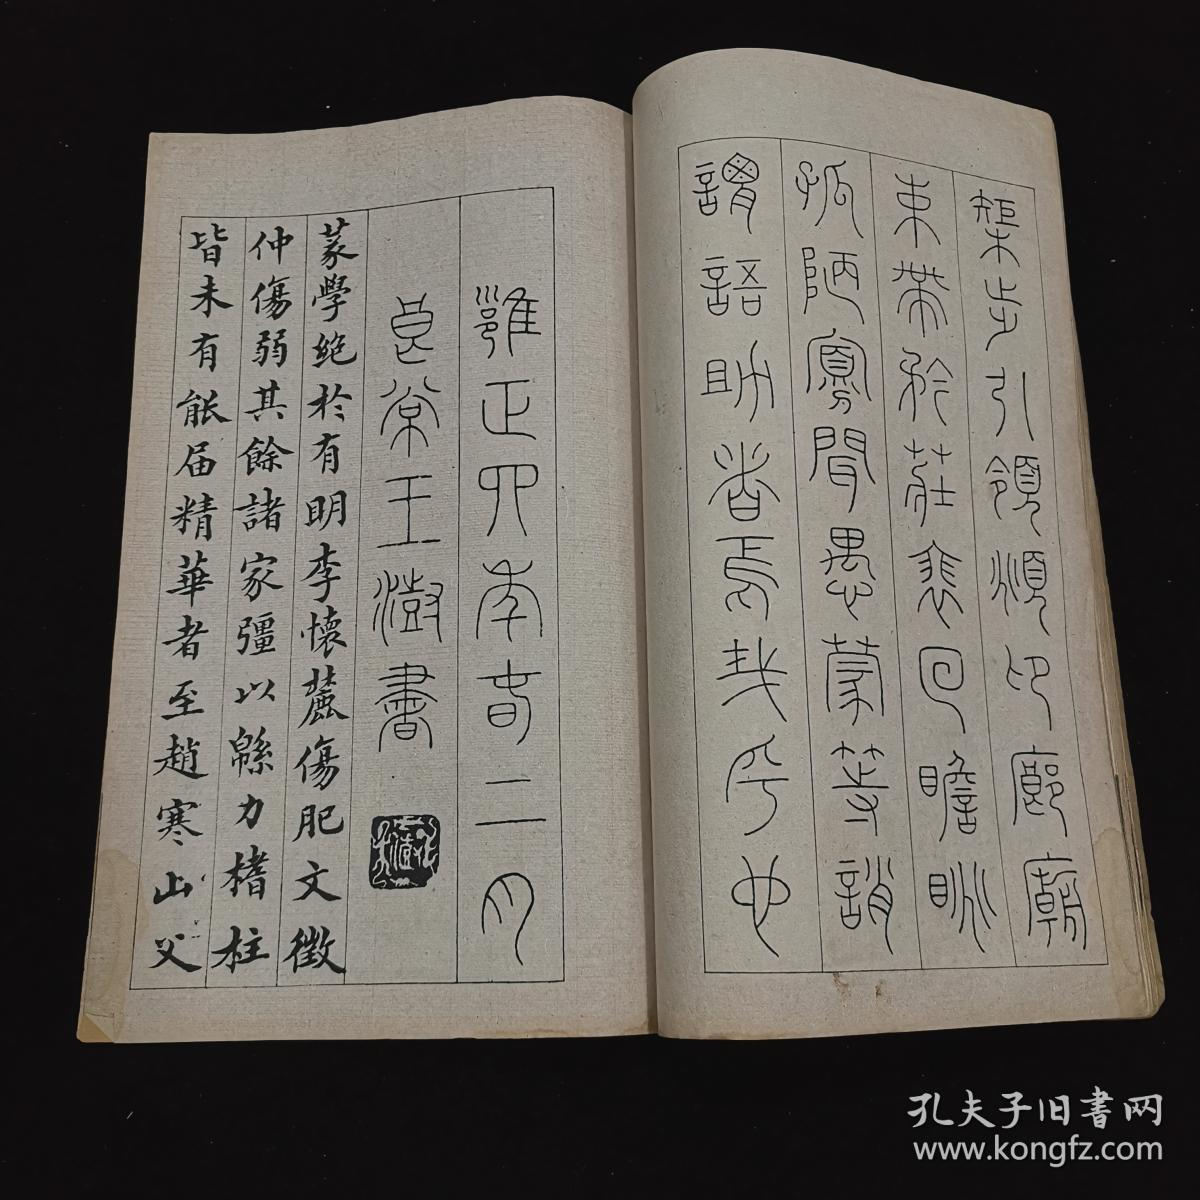 榘步引領頫卬廊廟
束帶矜莊裵回瞻眺
孤陋寡聞愚蒙等誚
謂語助者焉哉乎也
雝正四年春二月
良常王澍書
篆學絶於有明李懷麓傷肥文徵
仲傷弱其餘諸家彊以緜力榰柱
皆未有能届精華者至趙寒山父
孔夫子旧书网
www.kongfz.com